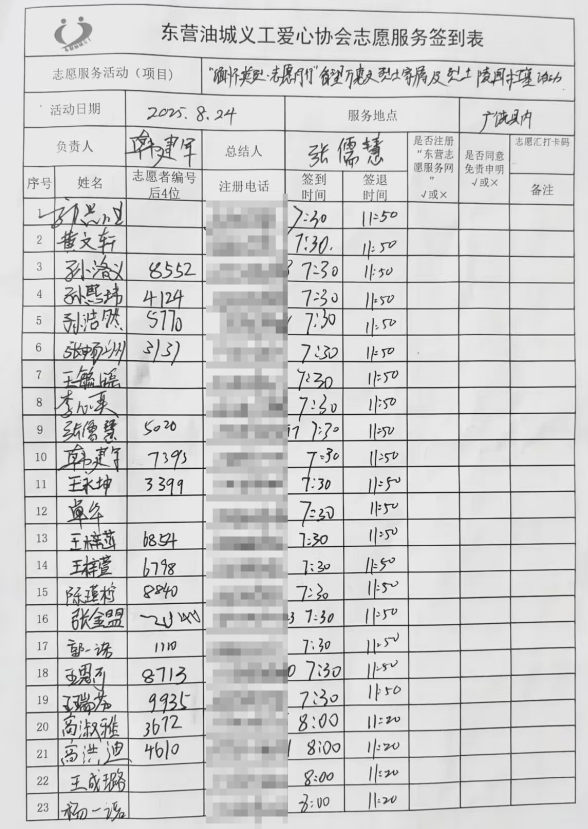 东营油城义工爱心协会志愿服务签到表
志愿服务活动（项目） 烈士家属及烈士陵园
活动日期 2025.8.24 服务地点 广饶县内
负责人 韩建军 总结人 张儒慧 是否注册“东营志愿服务网” √或× 是否同意免责申明 √或× 志愿汇打卡码
序号 姓名 志愿者编号后4位 注册电话 签到时间 签退时间 备注
7:30 11:50
2 黄文轩 7:30. 11:50
3 孙洛义 8552 7:30 11:50
4 孙 4124 7:30 11:50
5 孙浩然 5770 7:30 11:50
6 3131 7:30 11:50
7 王毓瑶 7:30 11:50
8 李 7:30 11:50
9 张儒慧 5020 7:30 11:50
10 韩建军 7393 7:30 11:50
11 王永坤 3399 7:30 11:50
12 单 7:30 11:50
13 王梓萱 6854 7:30 11:50
14 王梓萱 6798 7:30 11:50
15 陈 8840 7:30 11:50
16 张金盟 7:30 11:50
17 郭一诺 1110 7:30 11:50
18 王 8713 7:30 11:50
19 王瑞芬 9935 7:30 11:50
20 高淑雅 3672 8:00 11:20
21 高洪迪 4610 8:00 11:20
22 王成璐 8:00 11:20
23 杨一诺 8:00 11:20